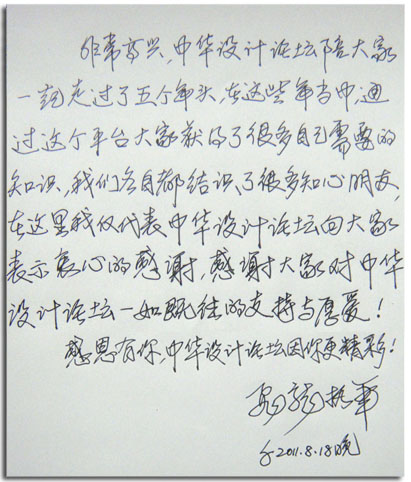 非常高兴，中华设计论坛陪大家
一起走过了五个年头，在这些年当中，通
过这个平台大家获得了很多自己需要的
知识，我们各自都结识了很多知心朋友，
在这里我仅代表中华设计论坛向大家
表示衷心的感谢，感谢大家对中华
设计论坛一如既往的支持与厚爱！
感恩有你，中华设计论坛因你更精彩！
于2011.8.18晚